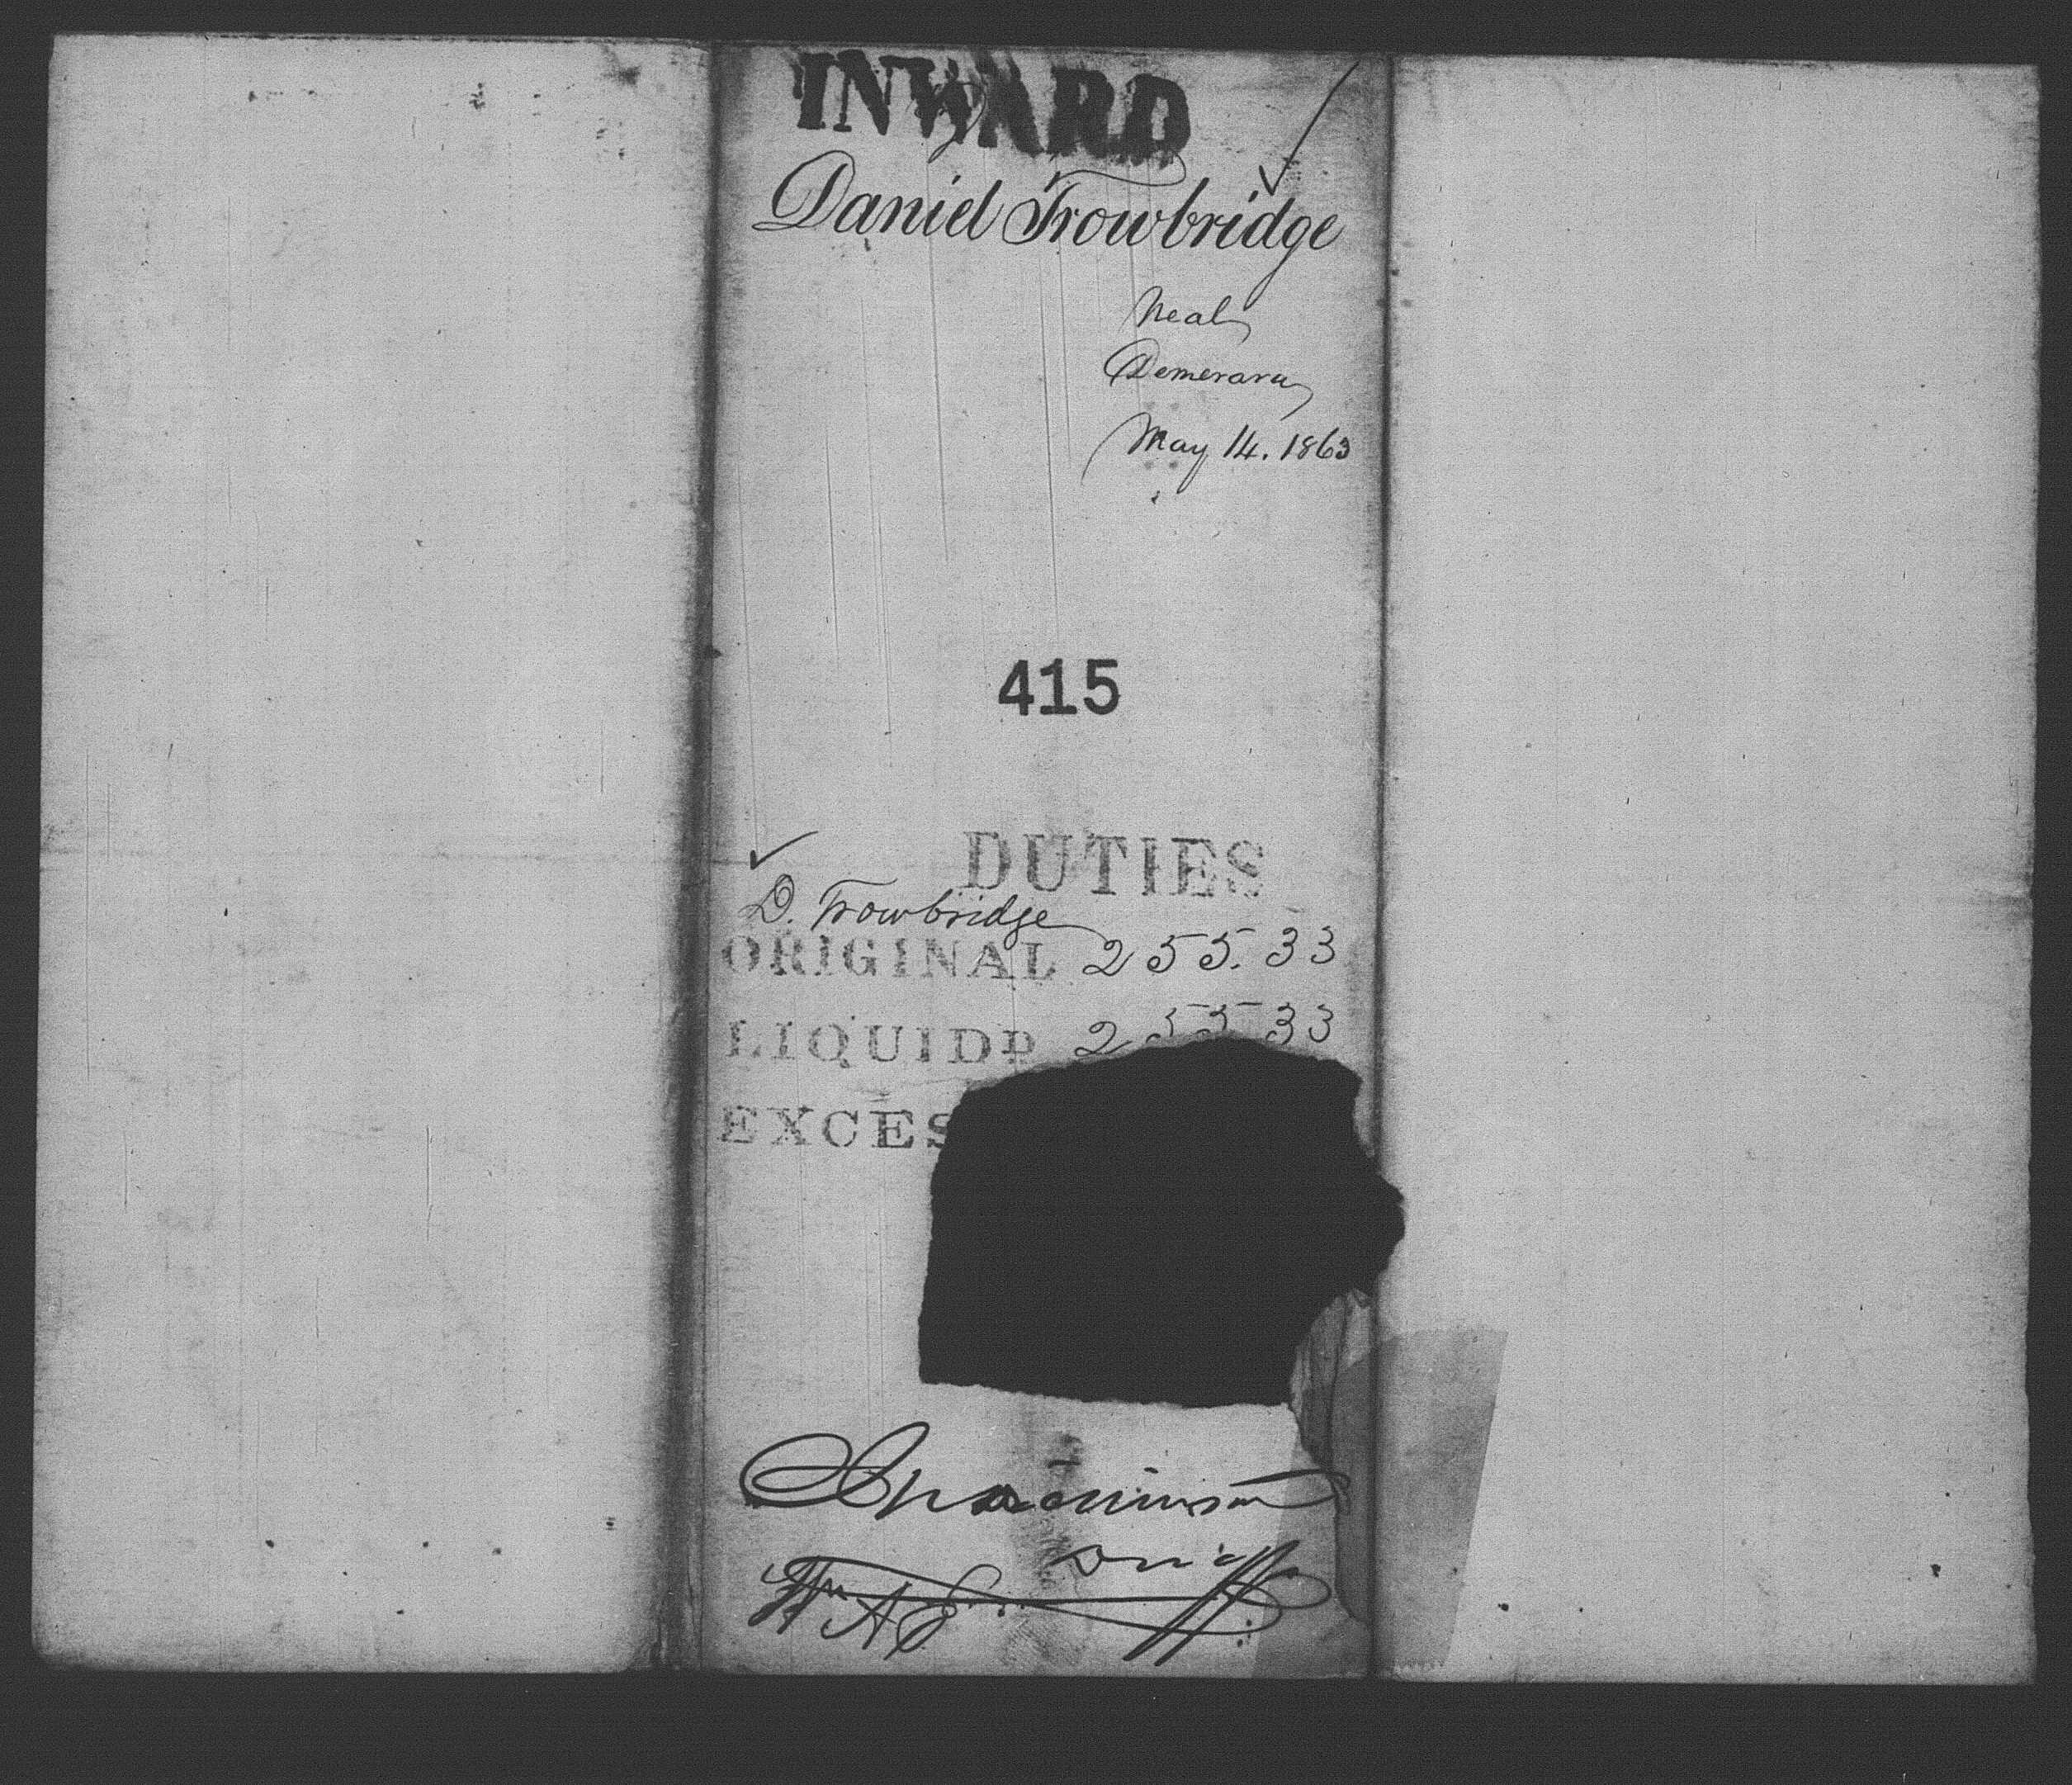 INWARD
Daniel Trowbridge
Neal
Demerara
May 14. 1863
415
DUTIES
D. Trowbridge
ORIGINAL 255.33
LIQUIDD 255 33
EXCES